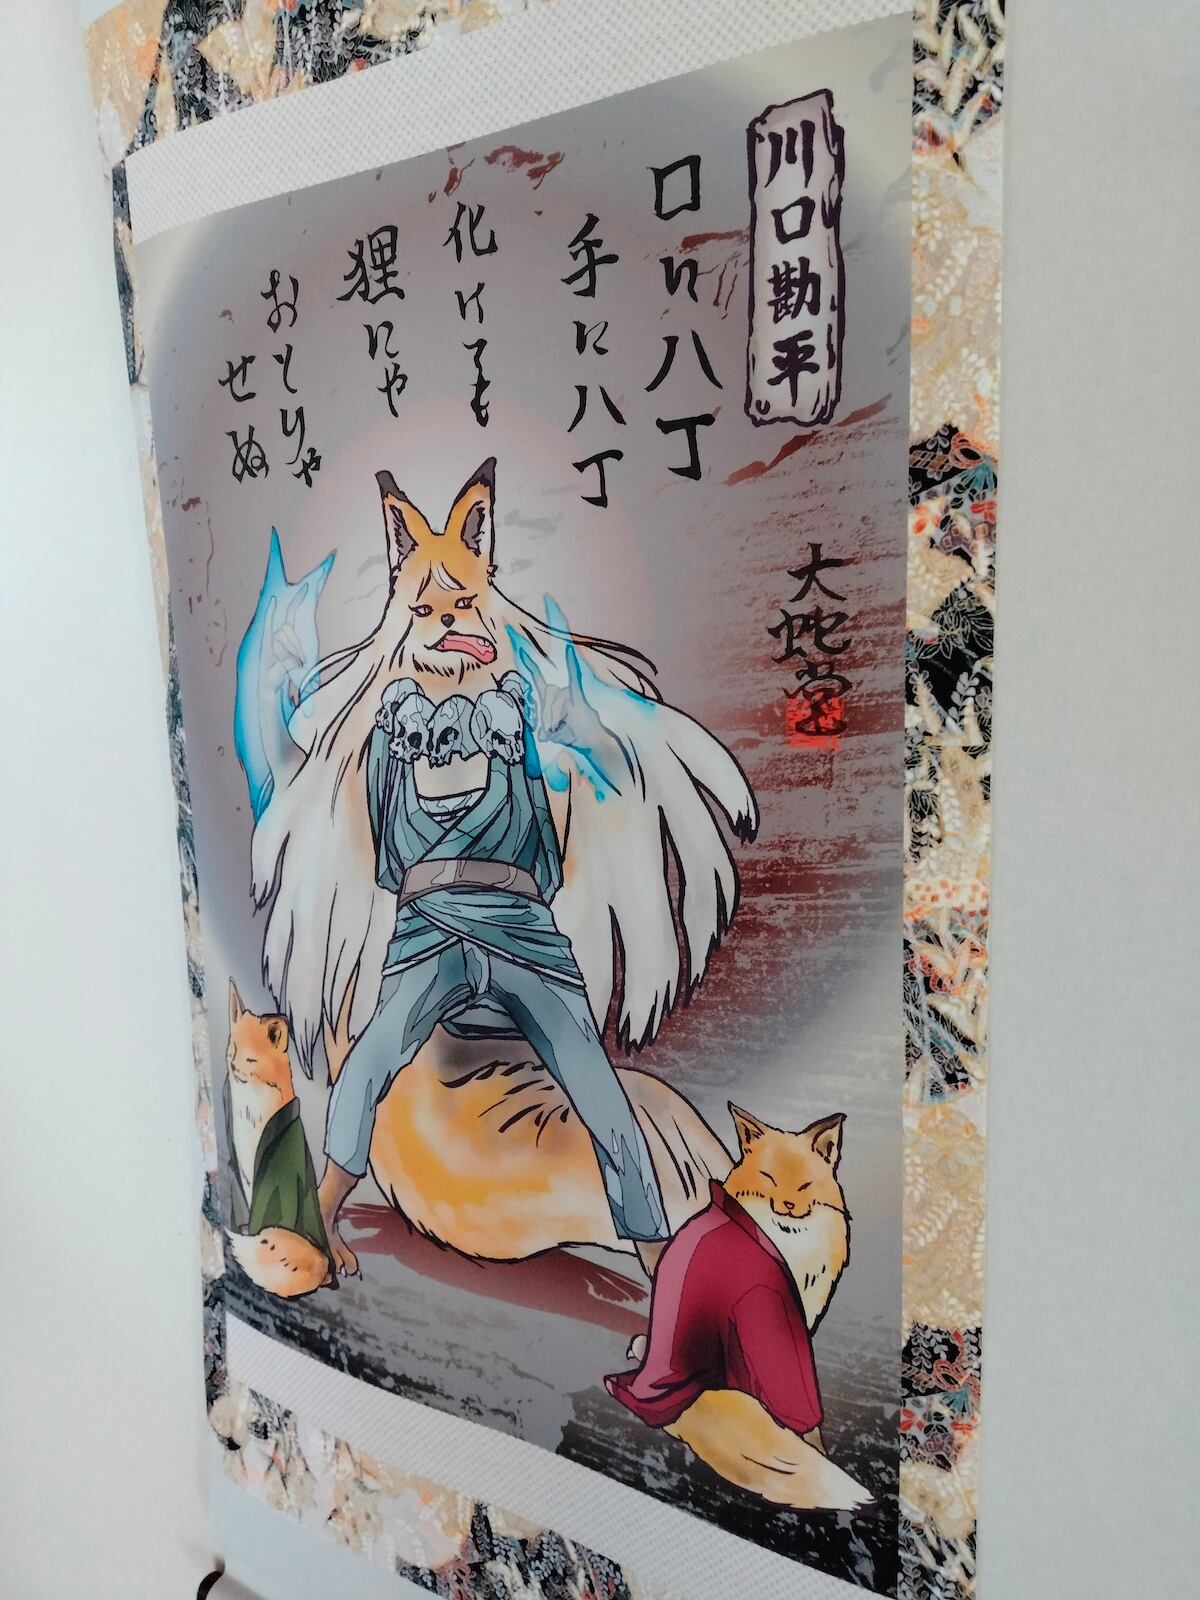 川口勘平
口に八丁
手に八丁
化けても
狸にや
おとりや
せぬ
大蛇堂